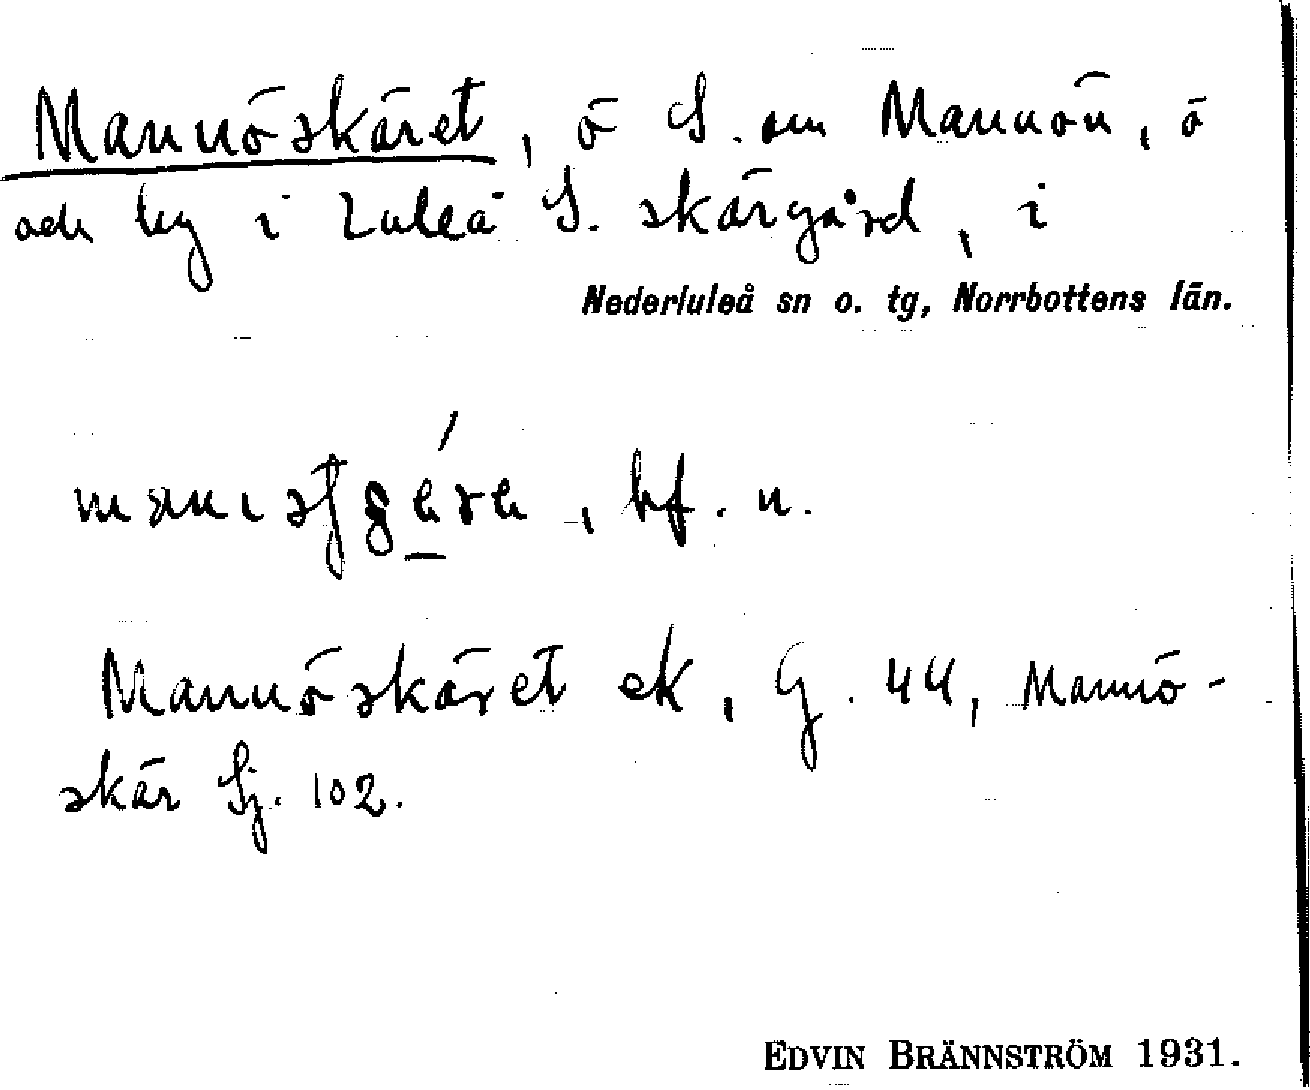 Mannöskäret, ö S. om Mannön, ö
och by i Luleå S. skärgård, i
Nederluleå sn o. tg, Norrbottens län.
bf. n.
Mannöskäret ek, G. 44, Mannö-
skär Sj. 102.
EDVIN BRÄNNSTRÖM 1931.